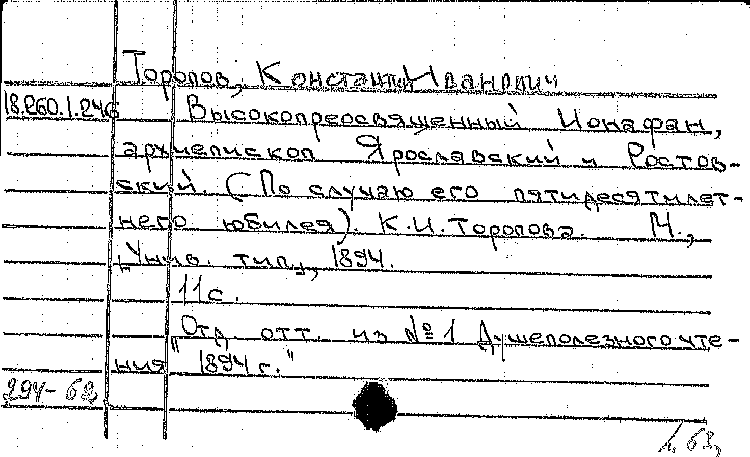 Торопов, Константин Иванович
18.260.1.246 Высокопреосвященный Ионафан,
архиепископ Ярославский и Ростов-
ский. (По случаю его пятидесятилет-
него юбилея). К.И.Торопова. М.,
„Унив. тип.", 1894.
11 с.
„Отд. отт. из №1 Душеполезного чте-
ния 1894 г."
294-62